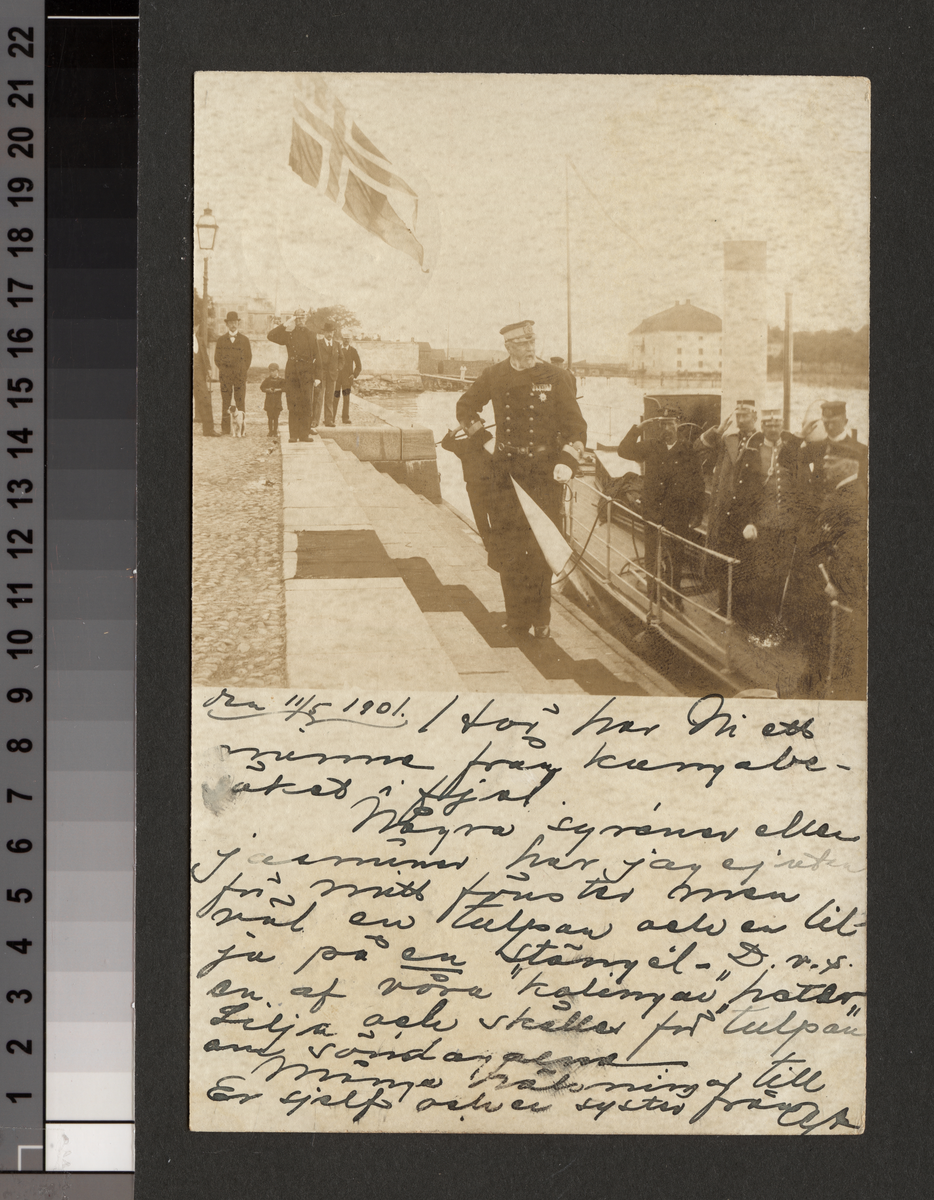 22
21
20
19
18
17
16
15
14
13
12
11
10
9
8
7
6
5
4
3
2
1
den 11/5 1901. har Ni ett
minne från kungabe-
söket i fjol
Några syréner eller
jasminer har jag ej utan
för mitt fönster men
väl en tulpan och en lil-
ja på en stängel - D.v.s.
en af våra
Lilja och skiller för tulpan
om söndagarne
Många hälsningar till
Er sjelf och er syster från